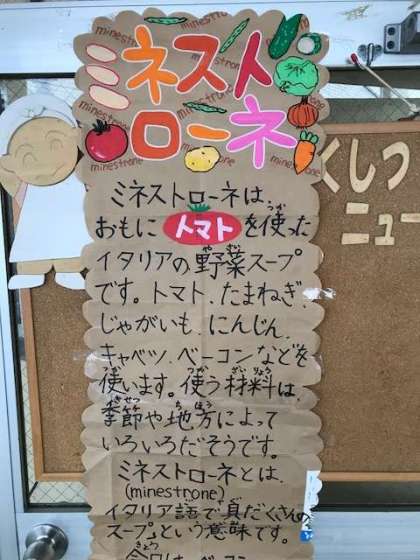 ミネスト
ローネ
minestrone
minestrone
minestrone
minestrone
minestrone
minestrone
くしつ
ニュー
ミネストローネは、
おもにトマトを使った
イタリアの野菜スープ
です。トマト、たまねぎ、
じゃがいも、にんじん、
キャベツ、ベーコンなどを
使います。使う材料は、
季節や地方によって
いろいろだそうです。
ミネストローネとは、
(minestrone)
イタリア語で具だくさんの
スープ」という意味です。